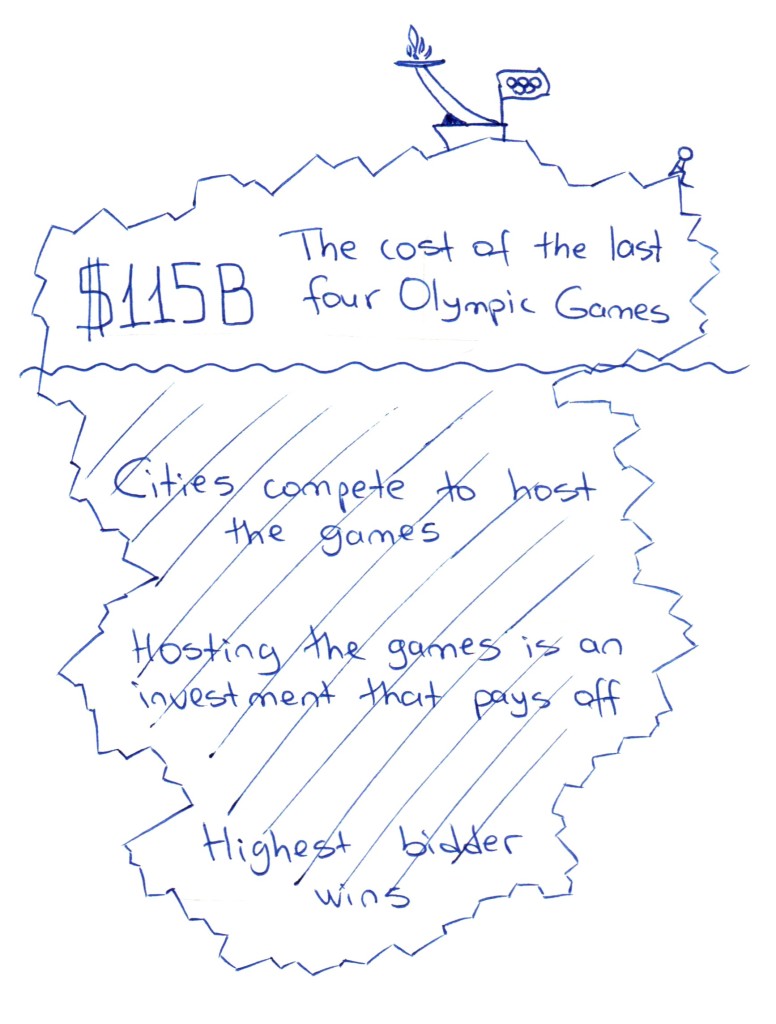 $115B
The cost of the last
four Olympic Games
Cities compete to host
the games
Hosting the games is an
investment that pays off
Highest bidder
wins